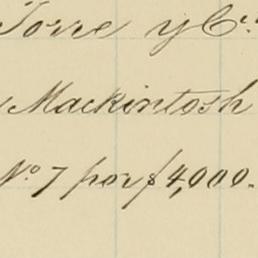 Torre y Cª.
Mackintosh
Nº 7 por $4,000.